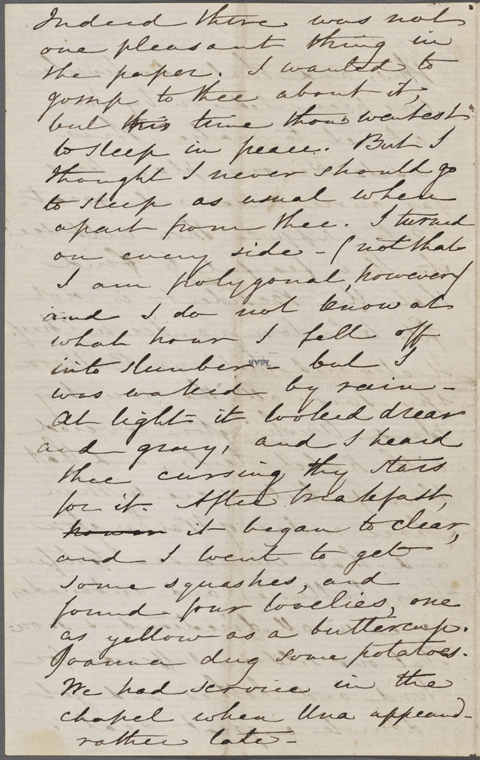 Indeed there was not
one pleasant thing in
the paper. I wanted to
gossip to thee about it,
but this time thou wentest
to sleep in peace. But I
thought I never should go
to sleep as usual when
apart from thee. I turned
on every side - (not that
I am polygonal, however)
and I do not know at
what hour I fell off
into slumber - but I
was waked by rain -
At light it looked drear
and gray, and I heard
thee cursing thy stars
for it. After breakfast,
it began to clear,
and I went to get
some squashes, and
found four lovelies, one
as yellow as a buttercup.
Joanna dug some potatoes.
We had service in the
chapel when Una appeared
rather late -